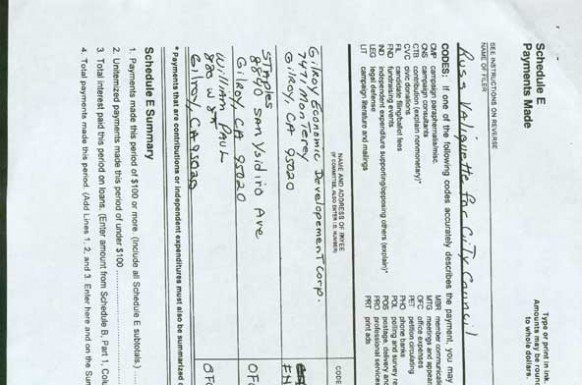 Schedule E
Payments Made
Type or print in ink.
Amounts may be rounded
to whole dollars.
SEE INSTRUCTIONS ON REVERSE
NAME OF FILER
Russ Valiquette for City Council
CODES: If one of the following codes accurately describes the payment, you may
CMP campaign paraphernalia/misc.
CNS campaign consultants
CTB contribution (explain nonmonetary)*
CVC civic donations
FIL candidate filing/ballot fees
FND fundraising events
IND independent expenditure supporting/opposing others (explain)*
LEG legal defense
LIT campaign literature and mailings
MBR member communicatio
MTG meetings and appeara
OFC office expenses
PET petition circulating
PHO phone banks
POL polling and survey re
POS postage, delivery and
PRO professional services
PRT print ads
NAME AND ADDRESS OF PAYEE
(IF COMMITTEE, ALSO ENTER I.D. NUMBER)
CODE
Gilroy Economic Developement Corp.
7471 Monterey
Gilroy, CA 95020
Staples
8840 San Ysidiro Ave
Gilroy, CA 95020
OF
William Paul
Gilroy, CA 95020
OF
* Payments that are contributions or independent expenditures must also be summarized o
Schedule E Summary
1. Payments made this period of $100 or more. (Include all Schedule E subtotals.)
2. Unitemized payments made this period of under $100
3. Total interest paid this period on loans. (Enter amount from Schedule B, Part 1, Colu
4. Total payments made this period. (Add Lines 1, 2, and 3. Enter here and on the Sum